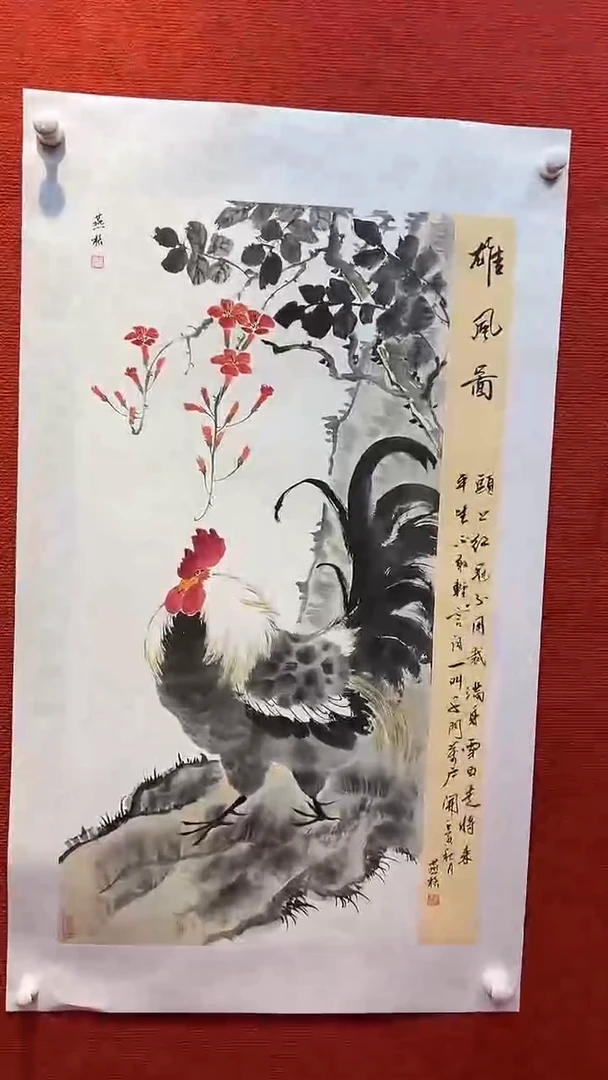 雄風圖
頭上紅冠不用裁 滿身雪白走將來
平生不敢輕言語 一叫千門萬戶開
燕
燕